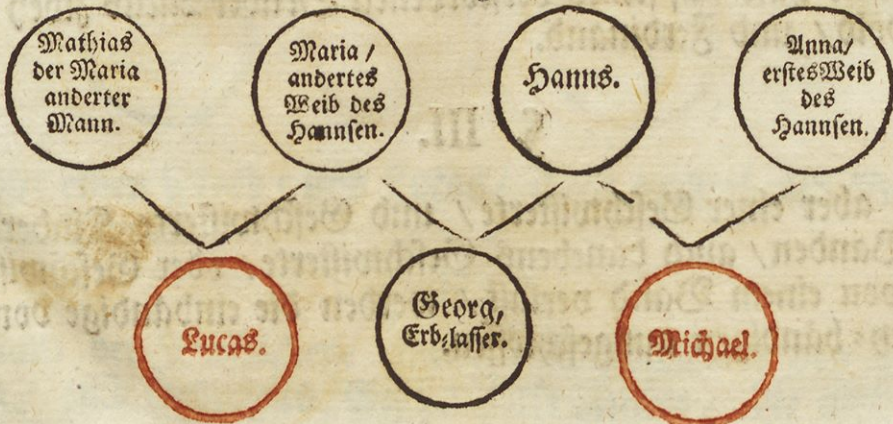 Mathias
der Maria
anderter
Mann.
Maria /
andertes
Weib des
Hannsen.
Hanns.
Anna/
erstes Weib
des
Hannsen.
Lucas.
Georg,
Erb-lasser.
Michael.